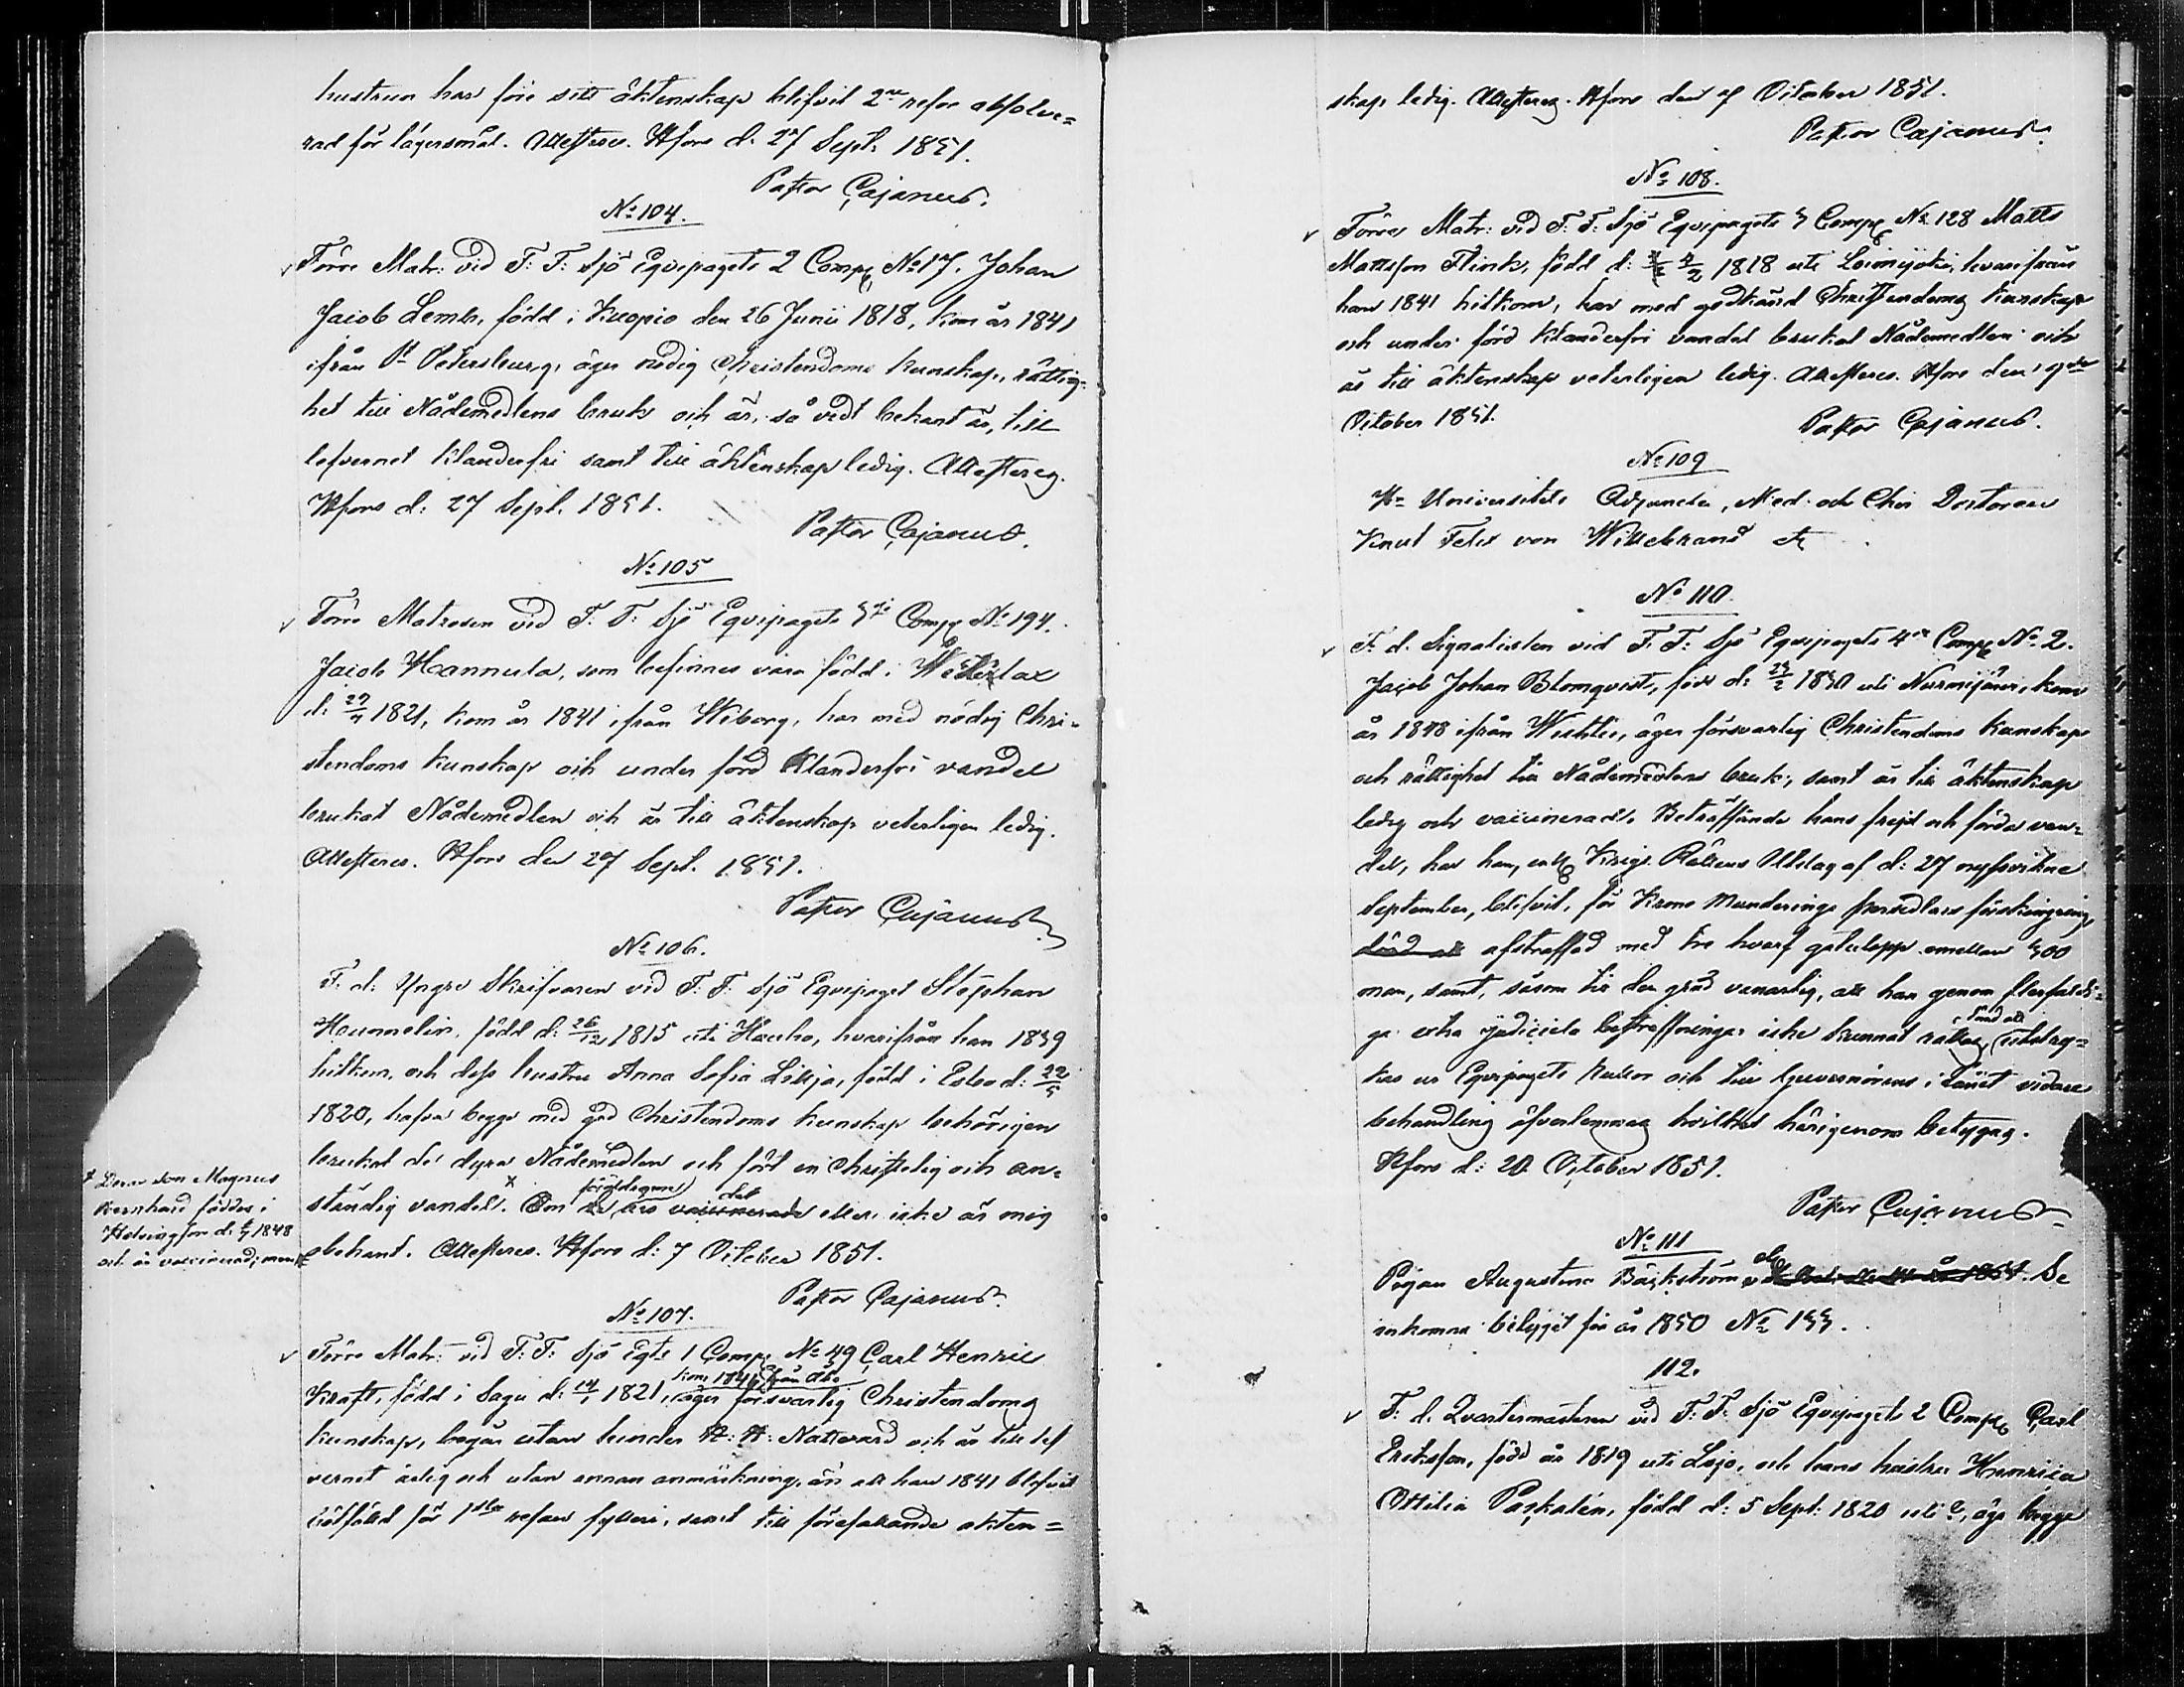 hustrun har före sitt äktenskap blifvit 2ne resor absolve=
rad för lägersmål. Attesteras. Hfors d. 27 Sept. 1851.
Pastor Cajanus.
No 104.
Förre Matr: vid F: F: Sjö Eqvipagets 2 Comp: No 17. Johan
Jacob Lemb, född i Kuopio den 26 Junii 1818, kom år 1841
ifrån St Petersburg, äger nödig Christendoms kunskap, rättig=
het till Nådemedlens bruk och är, så vidt bekant är, till
lefvernet klanderfri samt till äktenskap ledig. Attesteras.
Hfors d: 27 Sept. 1851.
Pastor Cajanus.
No 105
Förre Matrosen vid F. F: Sjö Eqvipagets Comp: No 194.
Jacob Hannula, som befinnes vara född i Wederlax
d: 1821, kom år 1841 ifrån Wiborg, har med nödig Chri-
stendoms kunskap och under förd klanderfri vandel
brukat Nådemedlen och är till äktenskap veterligen ledig.
Attesteras. Hfors den 27 Sept. 1851.
Pastor Cajanus
No 106.
F: d: Yngre Skrifvaren vid F: F: Sjö Eqvipaget Stephan
född d: 26/12 1815 uti Hauho, hvarifrån han 1839
hitkom, och dess hustru Anna Sofia Lilja, född i Esbo d:
1820, hafva begge med god Christendoms kunskap behörigen
brukat de dyra Nådemedlen och fört en christelig och an-
ständig vandel. x Om föräldrarne äro vaccinerade det eller icke är mig
obekant. Attesteras. Hfors d: 7 October 1851.
Pastor Cajanus.
x Deras son Magnus
Bernhard föddes i
Helsingfors d: 1848
och är vaccinerad; men
No 107.
Förre Matr: vid F: F: Sjö Eqts 1 Comp: No 49 Carl Henric
Kraft, född i Sagu d: 14/1 1821, kom 1841 från Åbo äger försvarlig Christendoms
kunskap, begår utan hinder H: H: Nattvard och är till lef
vernet ärlig och utan annan anmärkning, än att han 1841 blifvit
sakfälld för 1sta resan fylleri, samt till förefallande äkten=
skap ledig. Attesteras. Hfors den October 1851.
Pastor Cajanus.
No 108.
Förre Matr: vid F: F: Sjö Eqvipagets Comp: No 128 Matts
Mattsson Flink, född d: 1818 uti Loimijoki, hvarifrån
han 1841 hitkom, har med godkänd Christendoms kunskap
och under förd klanderfri vandel brukat Nådemedlen och
är till äktenskap veterligen ledig. Attesteras. Hfors den 9de
October 1851.
Pastor Cajanus.
No 109
Universitets Adjuncten, Med. och Chir Doctoren
Knut Felix von Willebrand
No 110.
F: d. Signalisten vid F: F: Sjö Eqvipagets 4de Comp: No 2.
Jacob Johan Blomqvist, född d: 1830 uti Nurmijärvi, kom
år 1848 ifrån Wichtis, äger försvarlig Christendoms kunskap
och rättighet till Nådemedlens bruk, samt är till äktenskap
ledig och vaccinerad. Beträffande hans frejd och förda van=
del, har han, enligt Krigs Rättens Utslag af d: 27 nyssvikne
September, blifvit, för Krono Munderings persedlars förskingring,
afstraffad med tre hvarf gatulopp emellan
man, samt, såsom till den grad vanartig, att han genom flerfaldi-
ga extra judiciela bestraffningar icke kunnat rättas, dömd att utstry=
kas ur Eqvipagets Rullor och till Guvernörens i Länet vidare
behandling öfverlemnas hvilket härigenom betygas.
Hfors d: 20 October 1851.
Pastor Cajanus
No 111
Pigan Augustina Bäckström Se
inkomna betyget för år 1850 No
112.
F: d. Qvartermästaren vid F: F: Sjö Eqvipagets 2 Comp: Carl
Eriksson, född år 1819 uti Lojo, och hans hustru Henrica
Ottilia född d: 5 Sept: 1820 uti äga begge